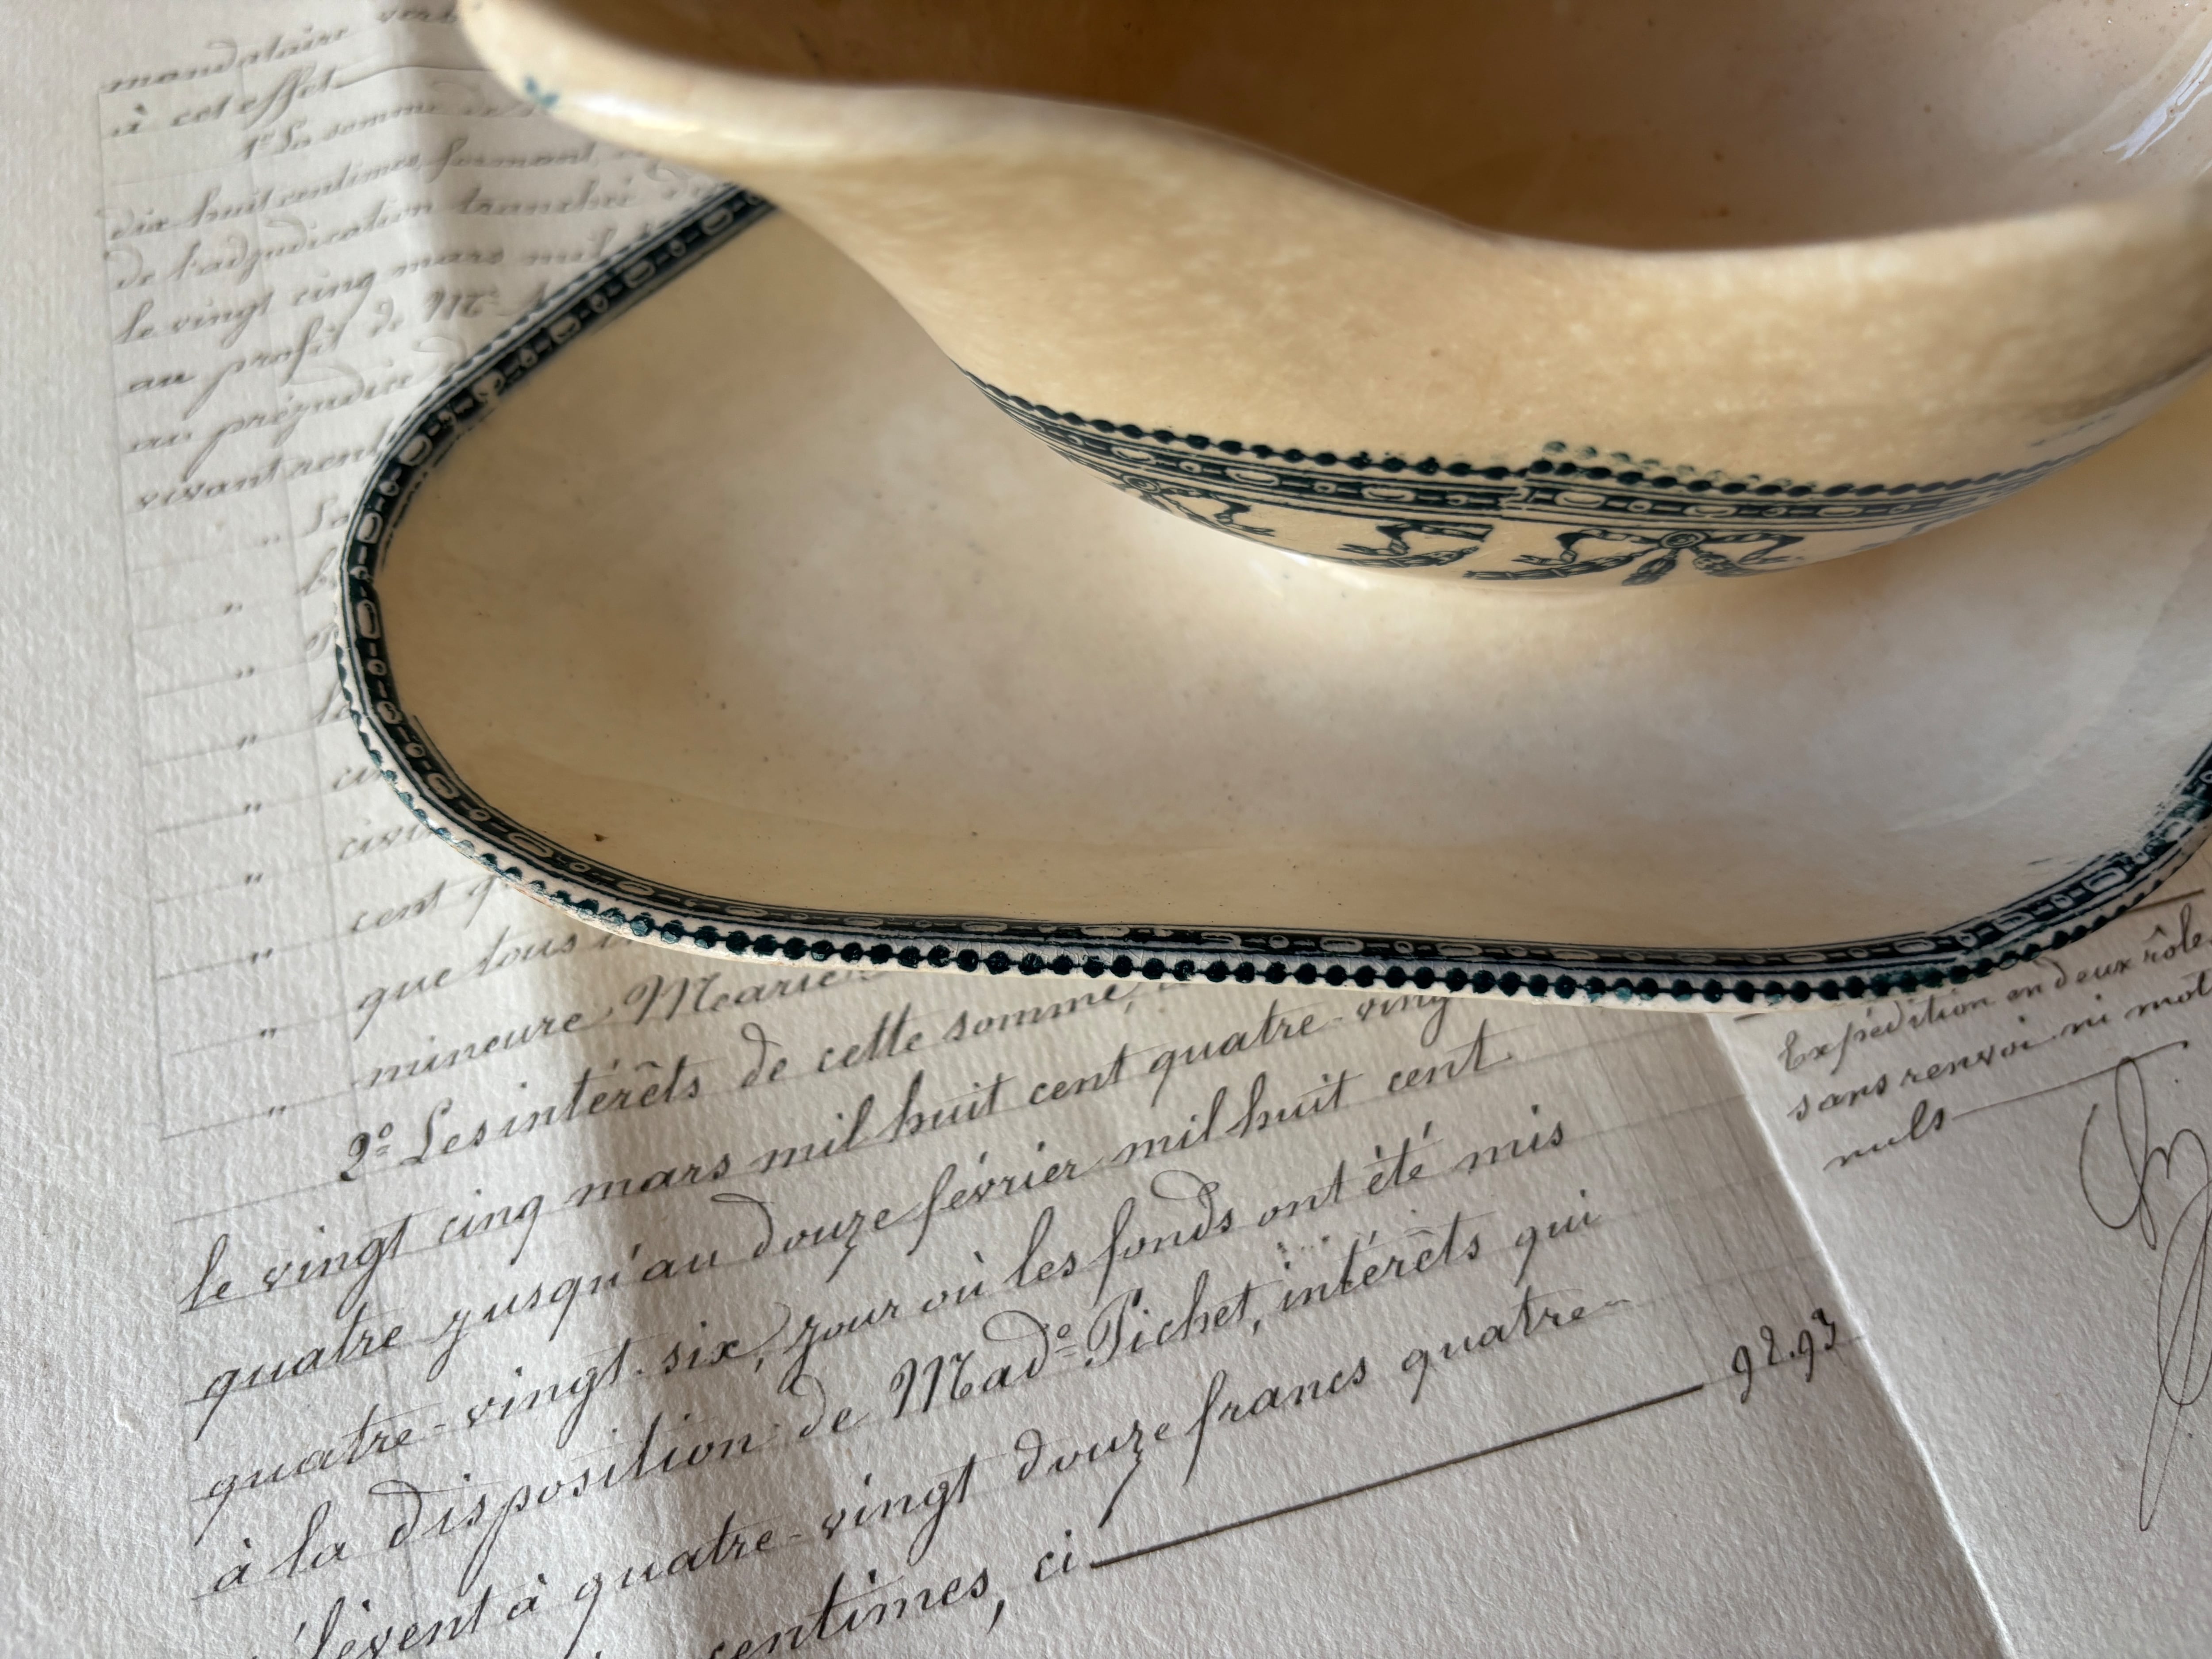 mandataire verb
à cet effet
1º La somme de
dix huit centimes formant
de l'adjudication tranchée
le vingt cinq mars mil
au profit de Mr
au préjudice
vivant rent
„ La
„
„
„
„ civi
„ cent q
„ que tous
„ mineure Marie
2º Les intérêts de cette somme,
le vingt cinq mars mil huit cent quatre-ving
quatre jusqu'au douze février mil huit cent
quatre-vingt-six, jour où les fonds ont été mis
à la disposition de Made Pichet, intérêts qui
s'élèvent à quatre-vingt douze francs quatre
centimes, ci 92.93
Expédition en deux rôle
sans renvoi ni mot
nuls